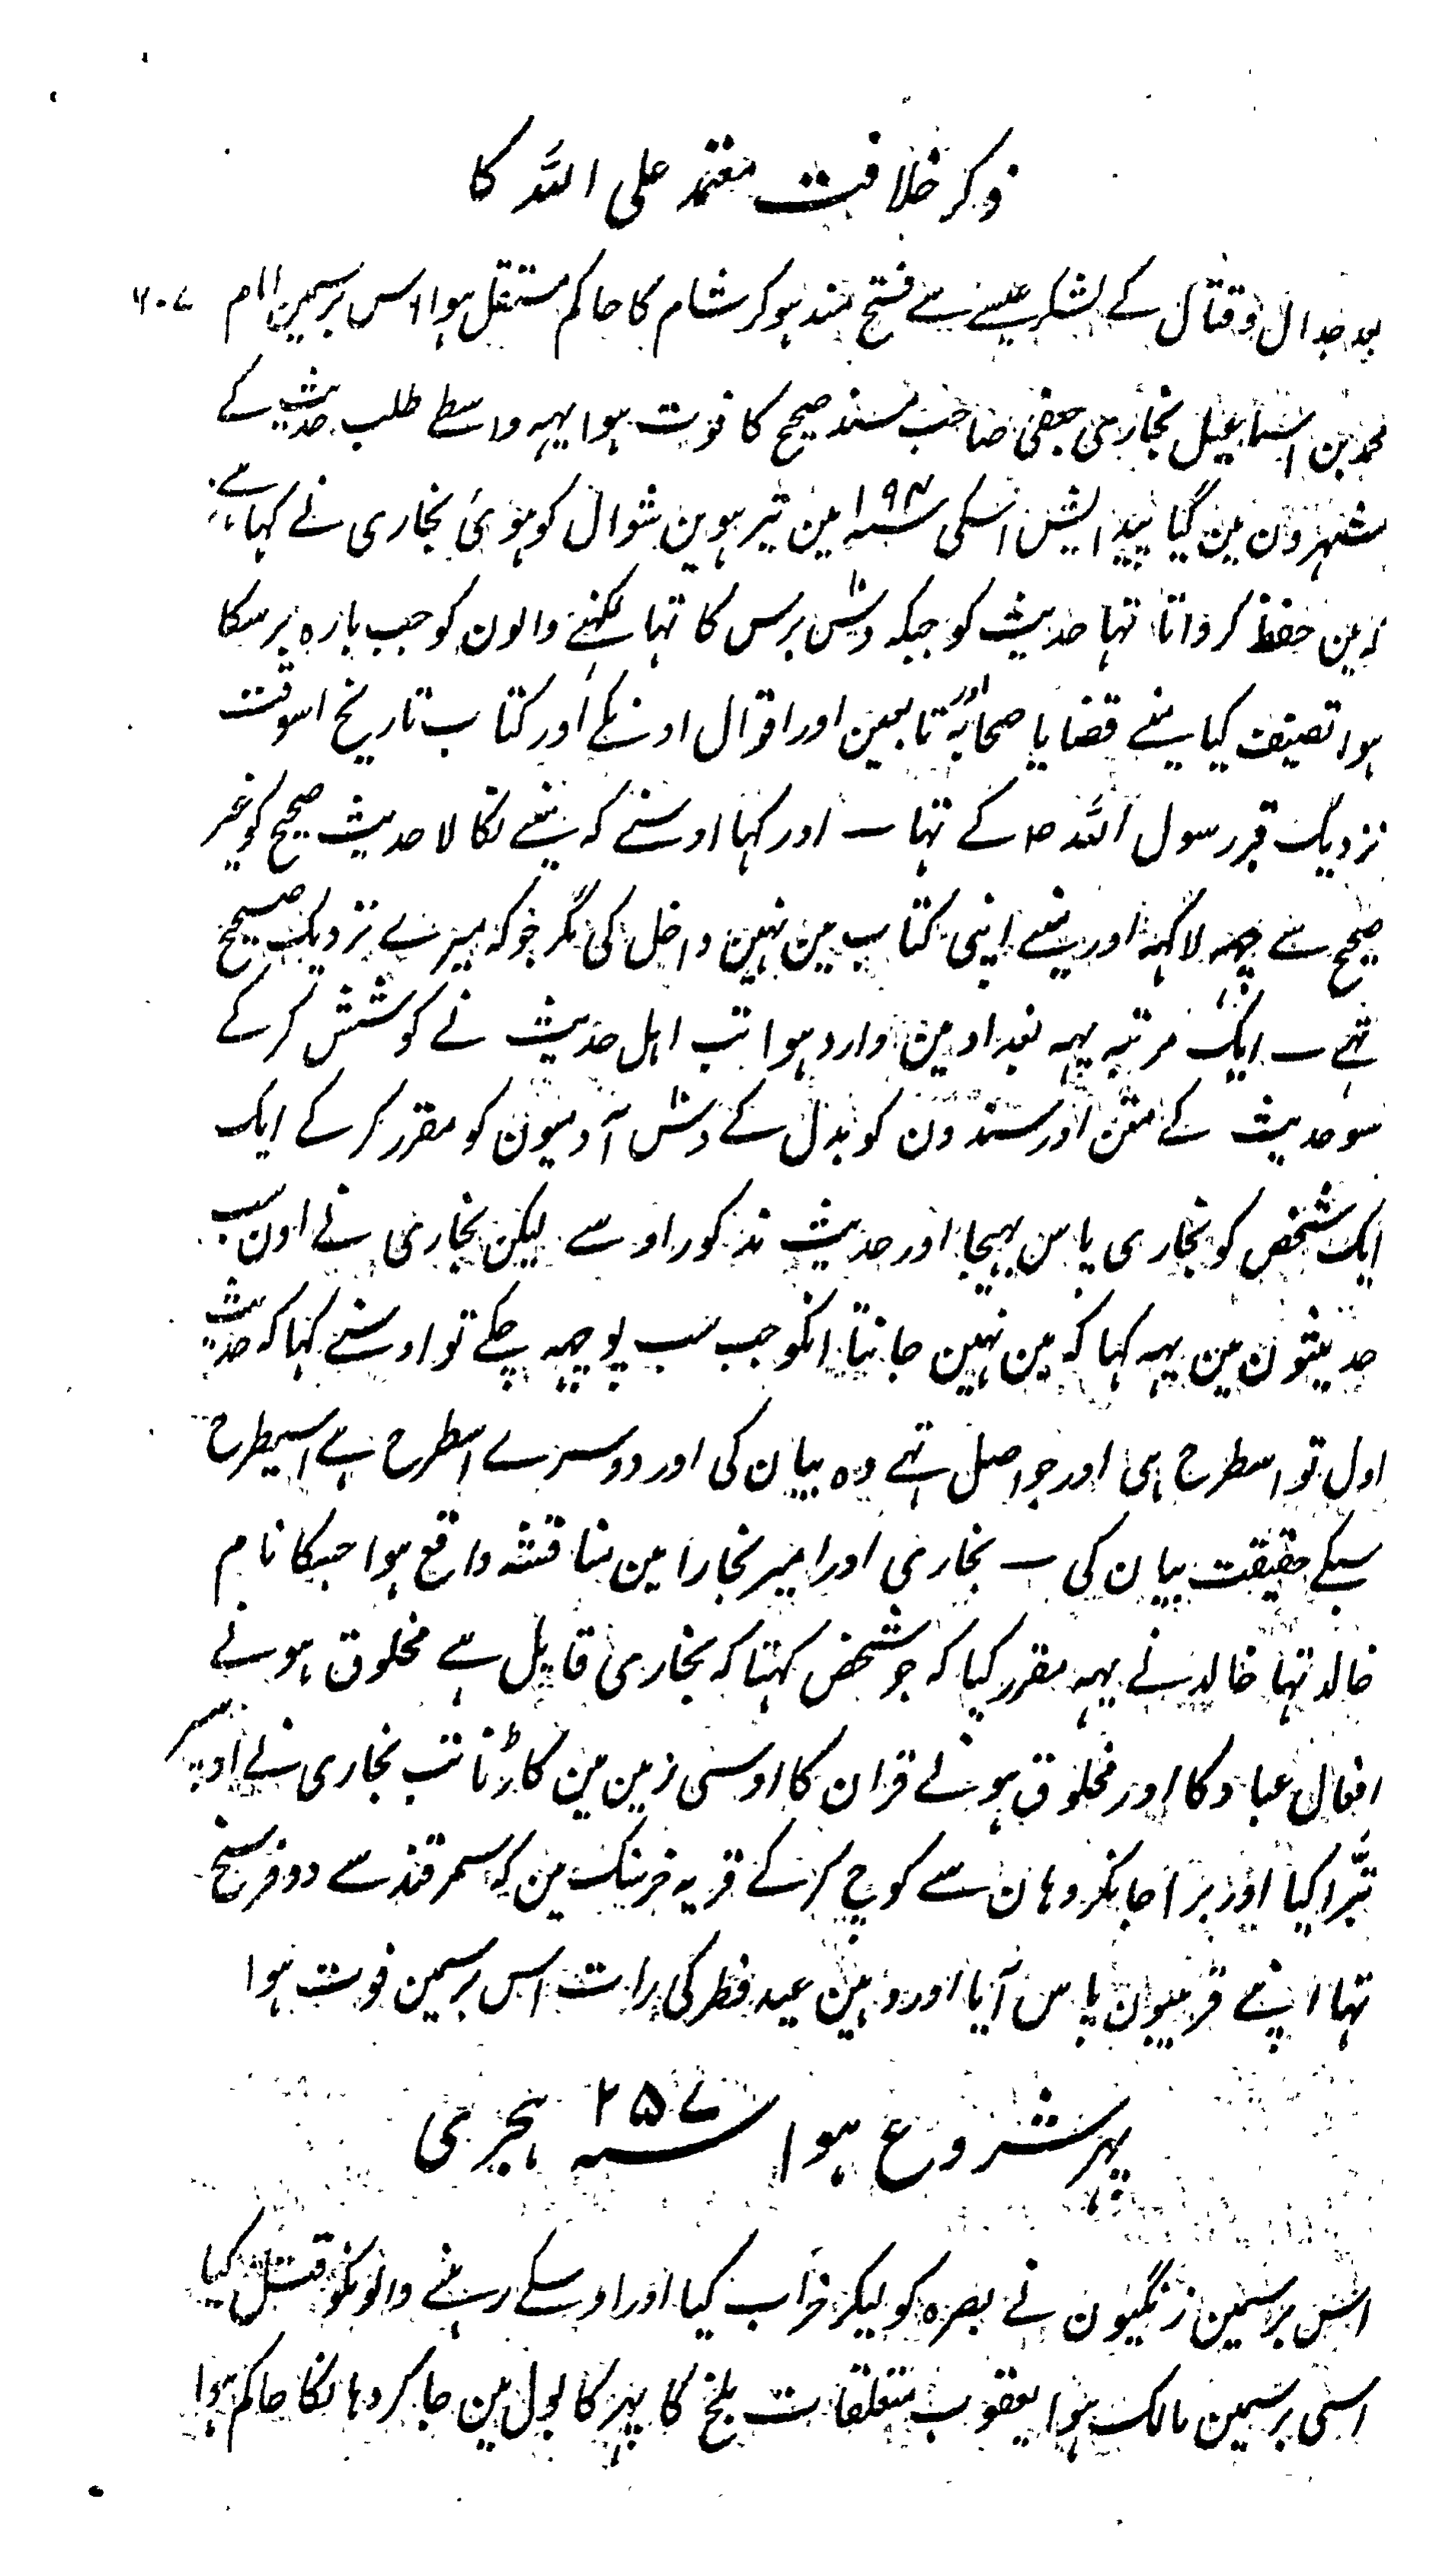 ذکر خلافت معتمد علی اللہ کا
۶۰۷
بعد جدال و قتال کے لشکر عیسے سے فتح مند ہوکر شام کا حاکم مستقل ہوا اس برسمین امام
محمد بن اسماعیل بخاری جعفی صاحب مسند صحیح کا فوت ہوا یہہ واسطے طلب حدیث کے
شہرون مین گیا پیدایش اسکی سنہ ۱۹۴ مین تیرہوین شوال کو ہوئ بخاری نے کہا ہے
کہ مین حفظ کرواتا تہا حدیث کو جبکہ دش برس کا تہا لکہنے والون کو جب بارہ برسکا
ہوا تصنیف کیا مینے قضایا صحابہ اور تابعین اور اقوال اونکے اور کتاب تاریخ اسوقت
نزدیک قبر رسول اللہ ص کے تہا ۔ اور کہا اوسنے کہ مینے نکالا حدیث صحیح کو غیر
صحیح سے چہہ لاکہہ اور مینے اپنی کتاب مین نہین داخل کی مگر جو کہ میرے نزدیک صحیح
تہے ۔ ایک مرتبہ یہہ بغداد مین وارد ہوا تب اہل حدیث نے کوشش کر کے
سو حدیث کے متن اور سندون کو بدل کے دش آدمیون کو مقرر کر کے ایک
ایک شخص کو بخاری پاس بہیجا اور حدیث مذکور اوسے لیکن بخاری نے اون سب
حدیثون مین یہہ کہا کہ مین نہین جانتا انکو جب سب پوچہہ چکے تو اوسنے کہا کہ حدیث
اول تو اسطرح ہی اور جو اصل تہے وہ بیان کی اور دوسرے اسطرح ہے اسیطرح
سبکے حقیقت بیان کی ۔ بخاری اور امیر بخارا مین مناقشہ واقع ہوا جسکا نام
خالد تہا خالد نے یہہ مقرر کیا کہ جو شخص کہتا کہ بخاری قایل ہے مخلوق ہونے
افعال عباد کا اور مخلوق ہونے قران کا اوسی زمین مین گاڑتا تب بخاری نے اوسپر
تبّرا کیا اور برا جانکر وہان سے کوچ کرکے قریہ خرنتک مین کہ سمرقند سے دو فرسخ
تہا اپنے قریبون پاس آیا اور وہین عید فطر کی رات اس برسمین فوت ہوا
پہر شروع ہوا سنہ ۲۵۷ ہجری
اس برسمین زنگیون نے بصرہ کو لیکر خراب کیا اور اوسکے رہنے والونکو قتل کیا
اسی برسمین مالک ہوا یعقوب متعلقات بلخ کا پہر کابول مین جا کر وہانکا حاکم ہوا